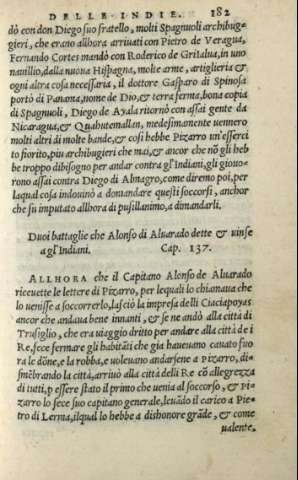 DELLE INDIE. 182
dò con don Diego suo fratello, molti Spagnuoli archibug-
gieri, che erano allhora arriuati con Pietro de Veragua,
Fernando Cortes mandò con Roderico de Gritalua, in uno
nauilio, dalla nuoua Hispagna, molte arme, artiglieria &
ogni altra cosa necessaria, il dottore Gasparo di Spinosa
portò di Panama, nome de Dio, & terra ferma, bona copia
di Spagnuoli, Diego de Ayala ritornò con assai gente da
Nicaragua, & Quahutemallan, medesimamente uennero
molti altri di molte bande, & cosi hebbe Pizarro un'esserci
to fiorito, piu archibugieri che mai, & ancor che nō gli heb
be troppo dibisogno per andar contra gl'Indiani, gli giouo-
rono assai contra Diego di Almagro, come diremo poi, per
laqual cosa indouinò a domandare questi soccorsi, anchor
che fu imputato allhora di pusillanimo, a domandarli.
Duoi battaglie che Alonso di Aluarado dette & uinse
a gl'Indiani. Cap. 137.
ALLHORA che il Capitano Alonso de Aluarado
riceuette le lettere di Pizarro, per lequali lo chiamaua che
lo uenisse a soccorrerlo, lasciò la impresa delli Ciaciapoyas
ancor che andaua bene innanti, & se ne andò alla città di
Trusiglio, che era uiaggio dritto per andare alla città de i
Re, fece fermare gli habitāti che gia haueuano cauato fuo
ra le dōne, e la robba, e uoleuano andarsene a Pizarro, di=
smēbrando la città, arriuò alla città delli Re cō allegrezza
di tutti, p essere stato il primo che uenia al soccorso, & Pi=
zarro lo fece suo capitano generale, leuādo il carico a Pie=
tro di Lerma, ilqual lo hebbe a dishonore grāde, & come
ualente.